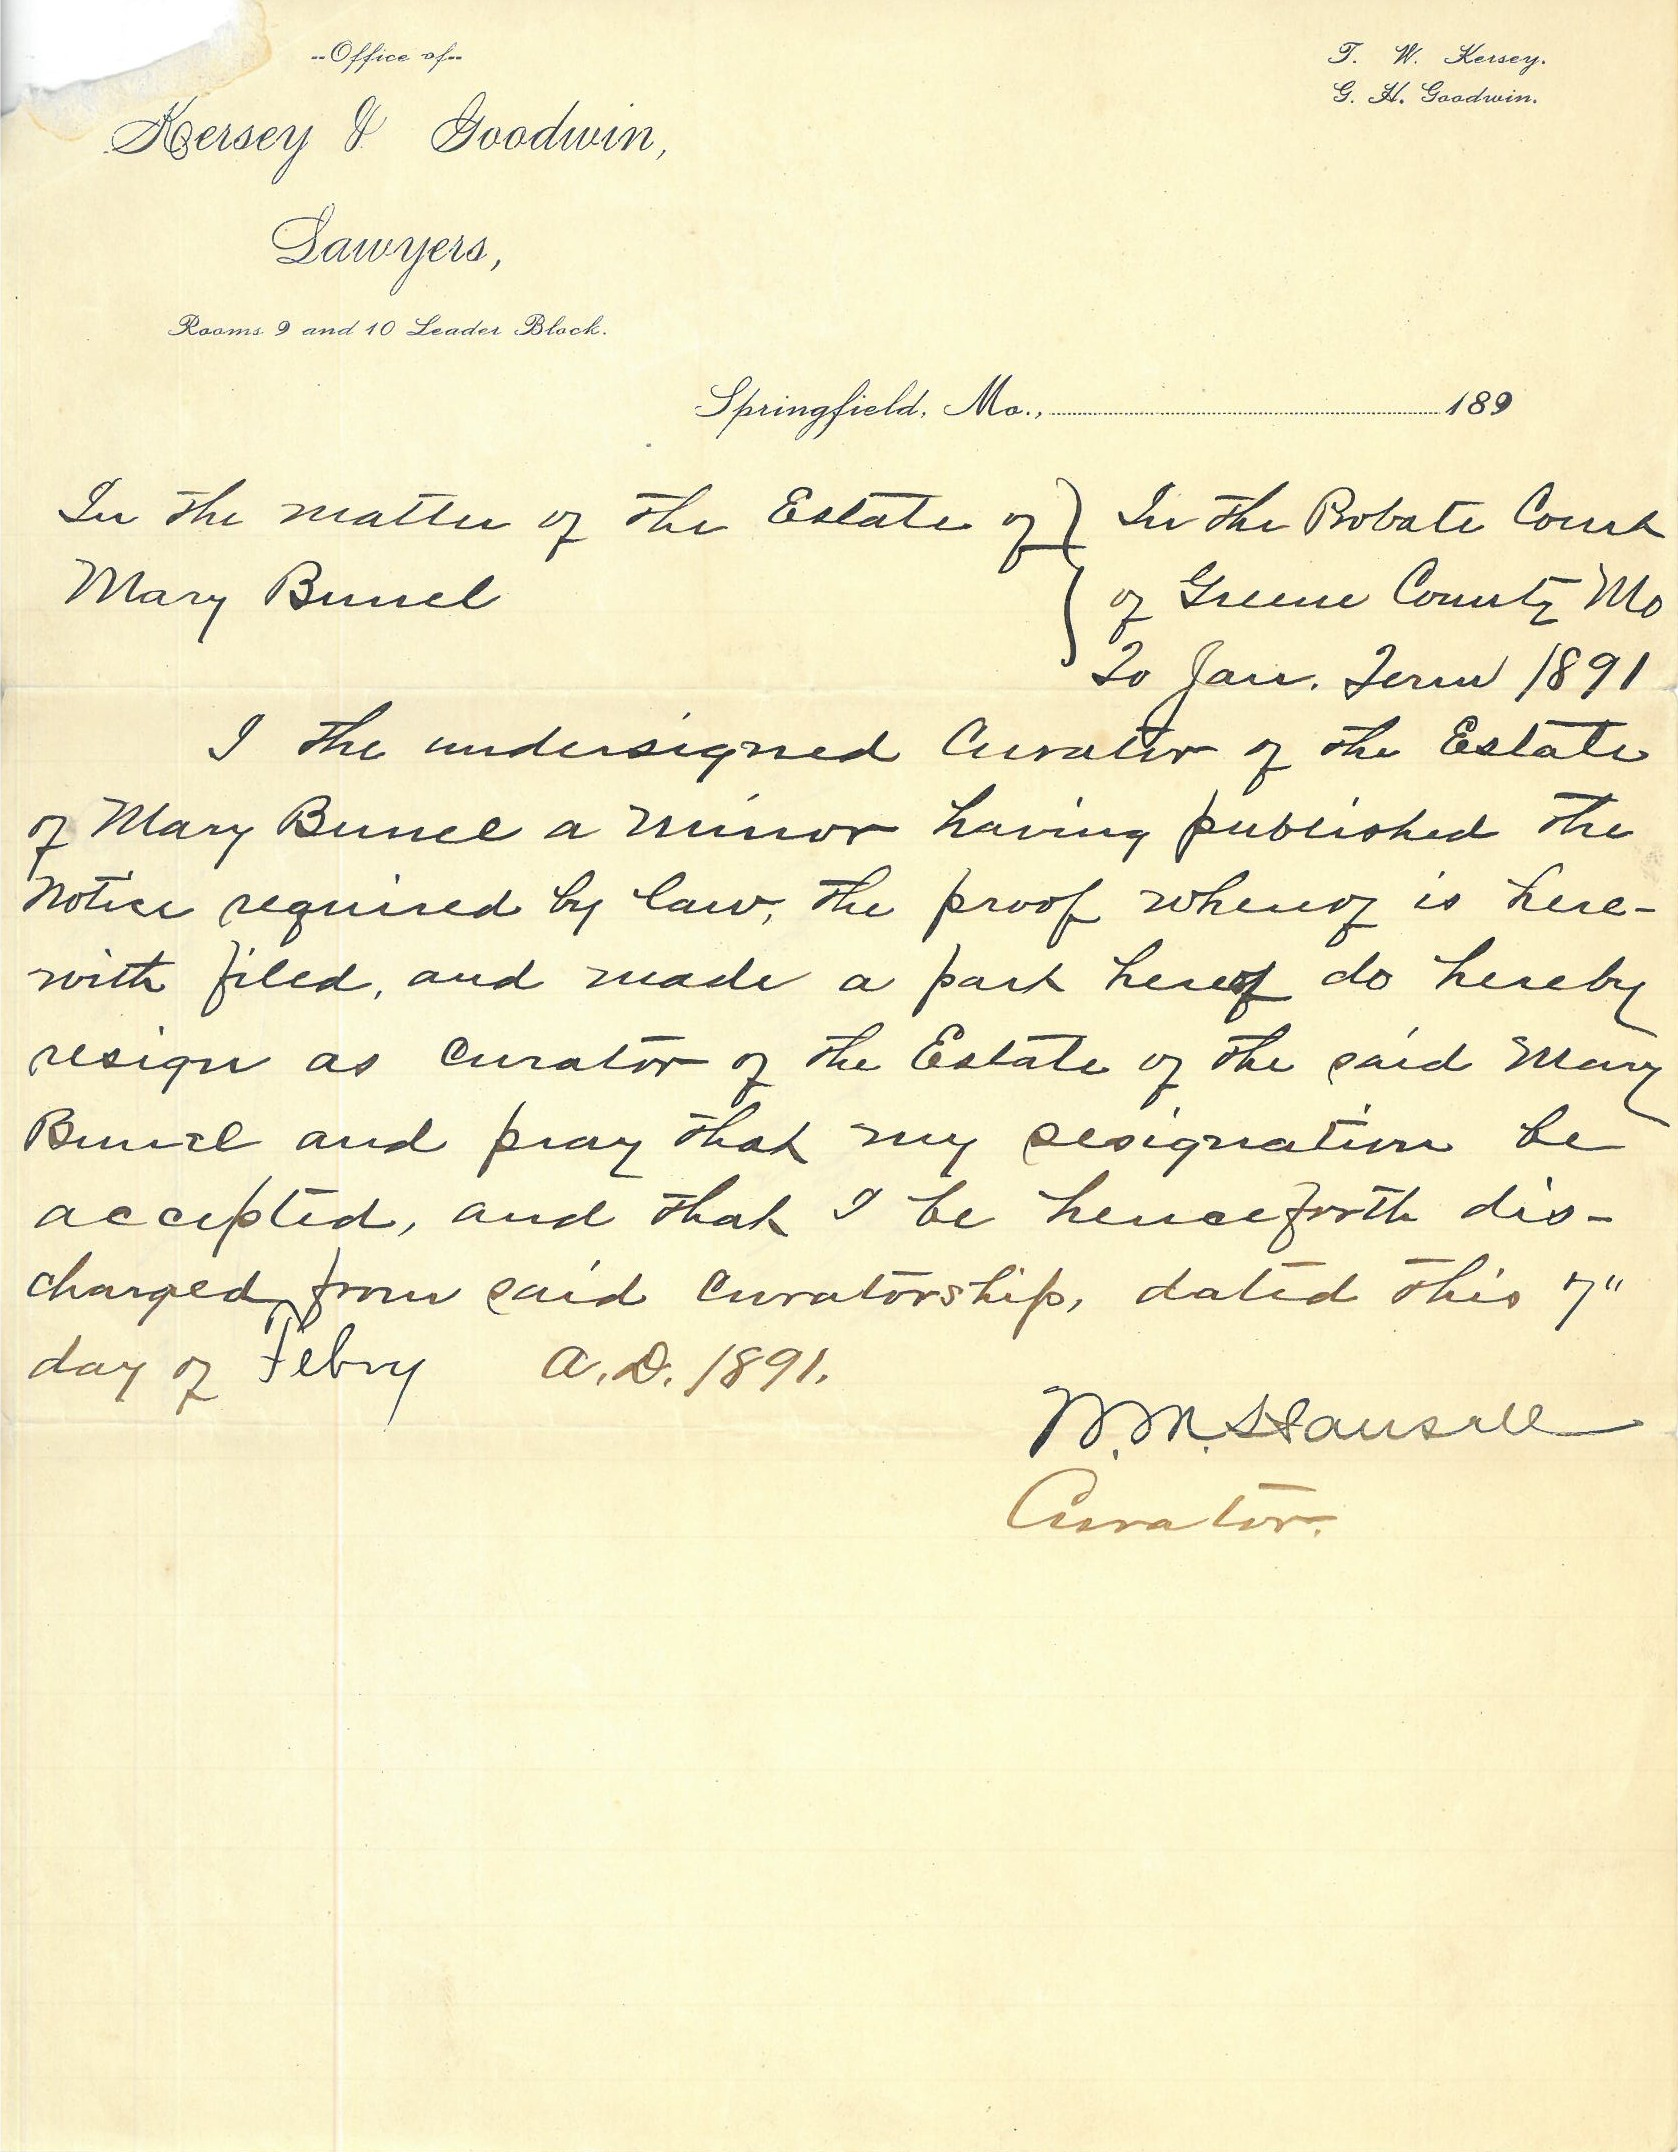 --Office of--
T. W. Kersey.
G. H. Goodwin.
Kersey & Goodwin,
Lawyers,
Rooms 9 and 10 Leader Block.
Springfield, Mo., 189
In the matter of the Estate of } In the Probate Court
Mary Bunel } of Greene County Mo
To Jan. Term 1891
I the undersigned Curator of the Estate
of Mary Bunel a minor having published the
notice required by law, the proof whereof is here-
with filed, and made a part hereof do hereby
resign as curator of the Estate of the said Mary
Bunel and pray that my resignation be
accepted, and that I be henceforth dis-
charged from said curatorship, dated this 7"
day of Febry A.D. 1891.
Curator.